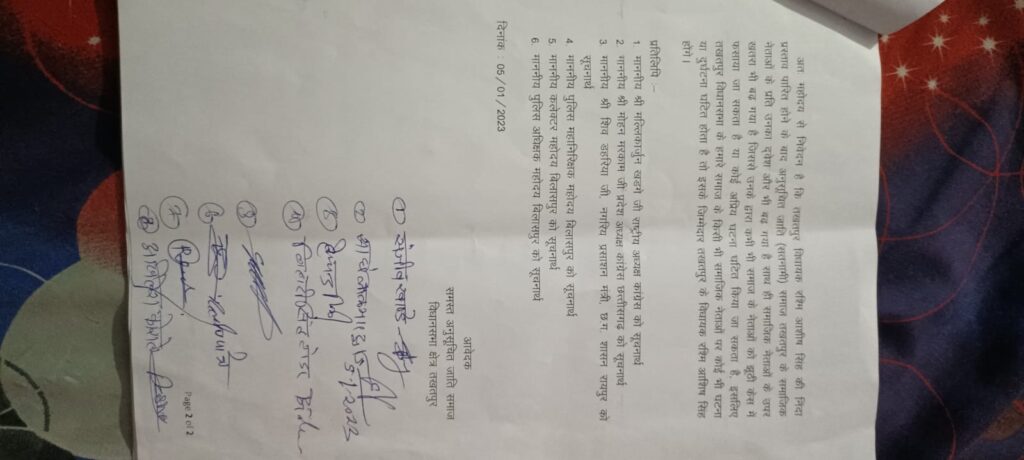 अतः महोदय से निवेदन है कि तखतपुर विधायक रश्मि आशीष सिंह की निंदा
प्रस्ताव पारित होने के बाद अनुसूचित जाति (सतनामी) समाज तखतपुर के सामाजिक
नेताओं के प्रति उनका दवेश और भी बढ़ गया है साथ ही समाजिक नेताओं के उपर
खतरा भी बढ गया है जिससे उनके द्वारा कभी भी समाज के नेताओं को झुठी केस में
फसाया जा सकता है या कोई अप्रिय घटना घटित किया जा सकता है, इसलिए
तखतपुर विधानसभा के हमारे समाज के किसी भी समाजिक नेताओं पर कोई भी घटना
या दुर्घटना घटित होता है तो इसके जिम्मेदार तखतपुर के विधायक रश्मि आशिष सिंह
होंगे।
प्रतिलिपि :-
1. माननीय श्री मल्लिकार्जुन खड़गे जी राष्ट्रीय अध्यक्ष कांग्रेस को सूचनार्थ
2. माननीय श्री मोहन मरकाम जी प्रदेश अध्यक्ष कांग्रेस छत्तीसगढ़ को सूचनार्थ
3. माननीय श्री शिव डहरिया जी, नगरिय प्रसाशन मंत्री, छ.ग. शासन रायपुर को
सूचनार्थ
4. माननीय पुलिस महानिरिक्षक महोदय बिलासपुर को सूचनार्थ
5. माननीय कलेक्टर महोदय बिलासपुर को सूचनार्थ
6. माननीय पुलिस अधिक्षक महोदय बिलासपुर को सूचनार्थ
दिनांक : 05/01/2023
आवेदक
समस्त अनुसूचित जाति समाज
विधानसभा क्षेत्र तखतपुर
①
②
③
④
⑤
⑥
⑦
⑧
Page 2 of 2